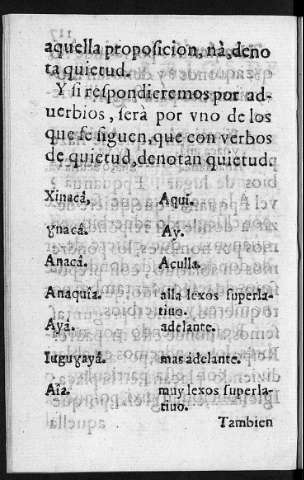 aquella proposicion, nà, deno
ta quietud.
Y si respondieremos por ad-
uerbios, serà por vno de los
que se siguen, que con verbos
de quietud, denotan quietud.
Xinacâ, Aqui.
ynacâ. Ay.
Anacâ. Aculla.
Anaquîa. alla lexos superla-
tiuo.
Ayâ. adelante.
Iuguyayâ. mas adelante.
Aîa. muy lexos superla-
tiuo.
Tambien